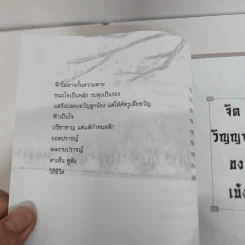 ฟ้าไม่อาจกั้นความตาย
ชนะใจเป็นหลัก รบพุ่งเป็นรอง
แสร้งปลอบขวัญลูกน้อง แต่ให้ศัตรูเสียขวัญ
ฟ้าเป็นใจ
ปรีชาชาญ แต่แพ้กำหนดฟ้า
ยอดปราชญ์
ผลงานปราชญ์
ตาเห็น หูฟัง
วิถีชีวิต
จิต
วิญญา
ขง
เบ้ง